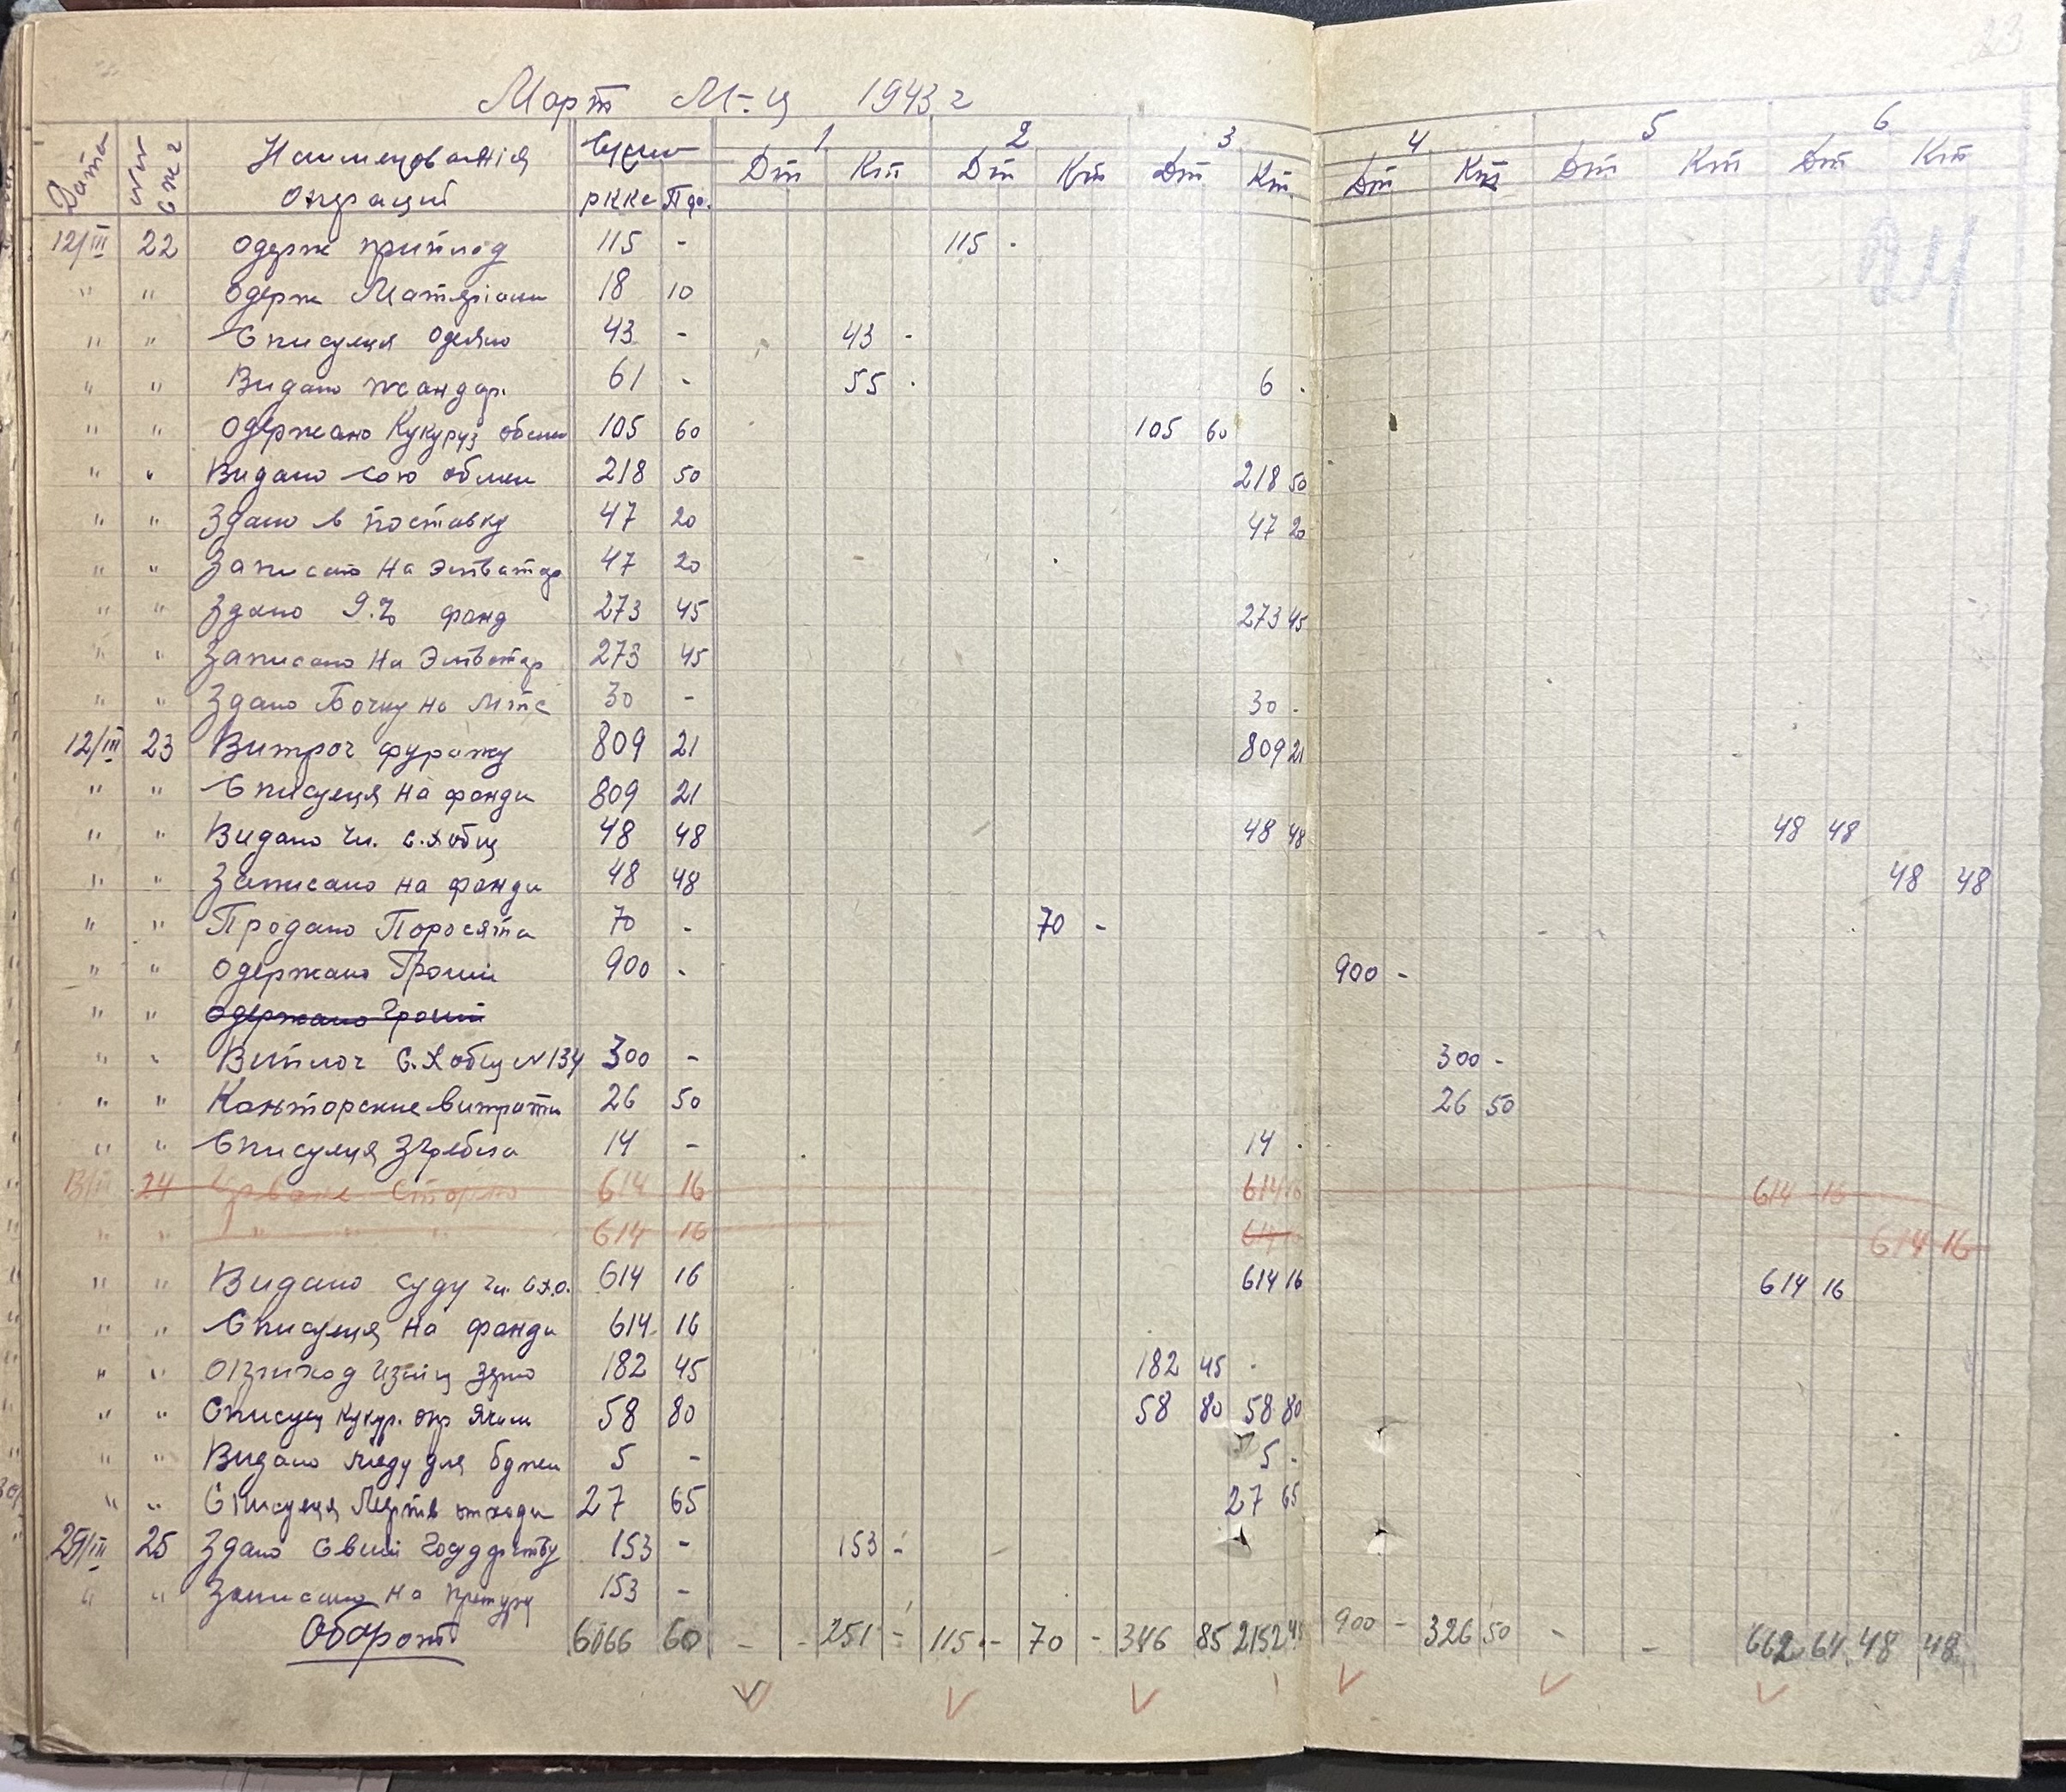 Март М-ц 1943 г
Дата №№ Наименованія операций Сума 1 2 3 4 5 6
рккс Дт Кт Дт Кт Дт Кт Дт Кт Дт Кт Дт Кт
12/III 22 Одерж приплод 115 - 115 -
" " Одерж Матеріали 18 10
" " Списуеця 43 - 43 -
" " Видано жандар. 61 - 55 - 6 -
" " Одержано Кукуруз обмен 105 60 105 60
" " Видано сою обмен 218 50 218 50
" " Здано в поставку 47 20 47 20
" " Записано на 47 20
" " Здано фонд 273 45 273 45
" " Записано на 273 45
" " Здано Бочку на Мтс 30 - 30 -
12/III 23 Витроч фуражу 809 21 809 21
" " Списуеця на фонди 809 21
" " Видано чл. с.х общ 48 48 48 48 48 48
" " Записано на фонди 48 48 48 48
" " Продано Поросята 70 - 70 -
" " Одержано Гроший 900 - 900 -
" " Одержано Гроший
" " Виплоч С.Х общ №134 300 - 300 -
" " Конторские витрати 26 50 26 50
" " Списуеця 14 - 14 -
13/III 24 Сторно 614 16 614 16 614 16
" " " " " 614 16 614 614 16
" " Видано суду чл. с.х.о. 614 16 614 16 614 16
" " Списуеця на фонди 614 16
" " зерно 182 45 182 45
" " Списуец кукур. 58 80 58 80 58 80
" " Видано меду для бджел 5 - 5 -
" " Списуеця Мертв отходи 27 65 27 65
29/III 25 Здано Свині 153 - 153 -
" " Записано на 153 -
Оборот 6066 60 - - 251 - 115 - 70 - 346 85 2152 900 - 326 50 - - 662 64 48 48